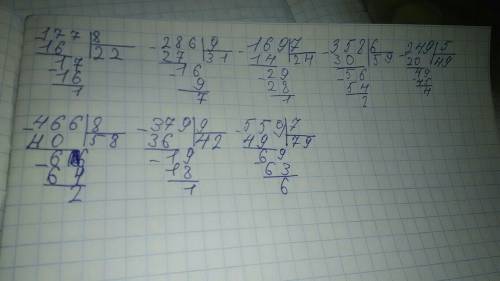 177 8 -286 9 -169 7 -358 6 -249 5
16 22 27 31 14 24 30 59 20 49
-17 -16 -29 -56 49
-16 9 28 54
1 7 1 4
-466 8 -379 9 -559 7
40 58 36 42 49 79
-6 -19 69
6 18 63
2 1 6